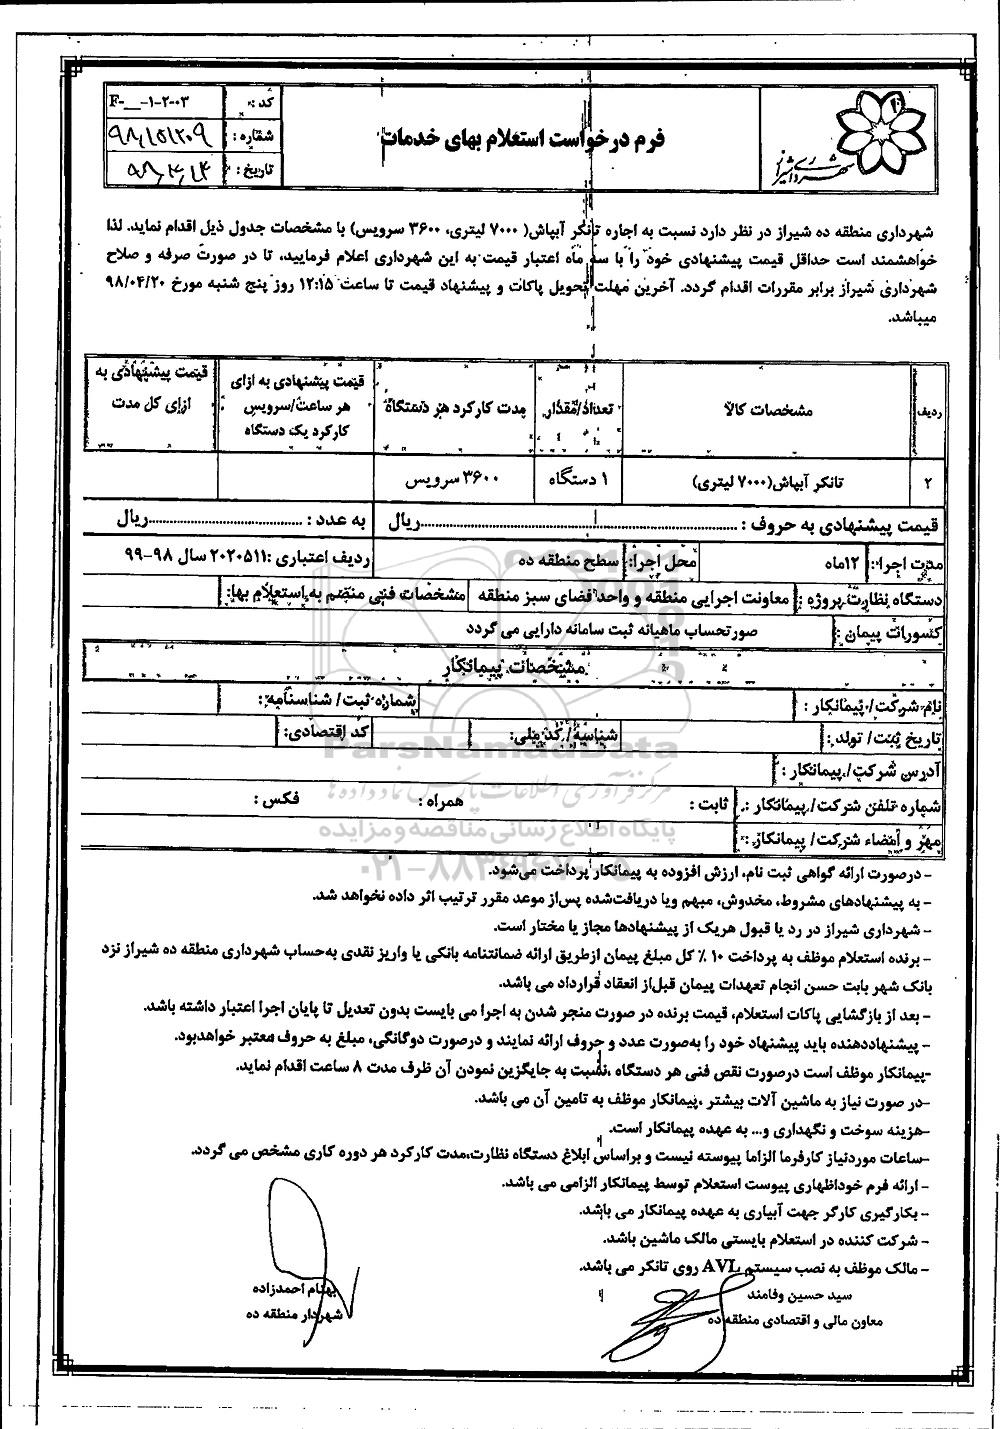 شهرداری شیراز
فرم درخواست استعلام بهای خدمات
کد : F-__-۱-۲-۰۳
شماره : ۹۸/۱۵۱۲۰۹
تاریخ : ۹۸/۴/۱۳
شهرداری منطقه ده شیراز در نظر دارد نسبت به اجاره تانکر آبپاش( ۷۰۰۰ لیتری، ۳۶۰۰ سرویس) با مشخصات جدول ذیل اقدام نماید. لذا
خواهشمند است حداقل قیمت پیشنهادی خود را با سه ماه اعتبار قیمت به این شهرداری اعلام فرمایید، تا در صورت صرفه و صلاح
شهرداری شیراز برابر مقررات اقدام گردد. آخرین مهلت تحویل پاکات و پیشنهاد قیمت تا ساعت ۱۲:۱۵ روز پنج شنبه مورخ ۹۸/۰۴/۲۰
میباشد.
ردیف | مشخصات کالا | تعداد/مقدار | مدت کارکرد هر دستگاه | قیمت پیشنهادی به ازای هر ساعت/سرویس کارکرد یک دستگاه | قیمت پیشنهادی به ازای کل مدت
۲ | تانکر آبپاش(۷۰۰۰ لیتری) | ۱ دستگاه | ۳۶۰۰ سرویس
قیمت پیشنهادی به حروف : ..........ریال به عدد : ..........ریال
مدت اجرا : ۱۲ماه محل اجرا: سطح منطقه ده ردیف اعتباری :۲۰۲۰۵۱۱ سال ۹۸-۹۹
دستگاه نظارت پروژه : معاونت اجرایی منطقه و واحد فضای سبز منطقه مشخصات فنی منضم به استعلام بها:
کسورات پیمان : صورتحساب ماهیانه ثبت سامانه دارایی می گردد
مشخصات پیمانکار
نام شرکت/ پیمانکار : شماره ثبت/ شناسنامه :
تاریخ ثبت/ تولد : شناسه/ کد ملی: کد اقتصادی:
آدرس شرکت/ پیمانکار :
شماره تلفن شرکت/ پیمانکار : ثابت : همراه : فکس :
مهر و امضاء شرکت/ پیمانکار :
- درصورت ارائه گواهی ثبت نام، ارزش افزوده به پیمانکار پرداخت می‌شود.
- به پیشنهادهای مشروط، مخدوش، مبهم ویا دریافت‌شده پس‌از موعد مقرر ترتیب اثر داده نخواهد شد.
- شهرداری شیراز در رد یا قبول هریک از پیشنهادها مجاز یا مختار است.
- برنده استعلام موظف به پرداخت ۱۰ ٪ کل مبلغ پیمان ازطریق ارائه ضمانتنامه بانکی یا واریز نقدی به‌حساب شهرداری منطقه ده شیراز نزد
بانک شهر بابت حسن انجام تعهدات پیمان قبل‌از انعقاد قرارداد می باشد.
- بعد از بازگشایی پاکات استعلام، قیمت برنده در صورت منجر شدن به اجرا می بایست بدون تعدیل تا پایان اجرا اعتبار داشته باشد.
- پیشنهاددهنده باید پیشنهاد خود را به‌صورت عدد و حروف ارائه نمایند و درصورت دوگانگی، مبلغ به حروف معتبر خواهدبود.
-پیمانکار موظف است درصورت نقص فنی هر دستگاه ،نسبت به جایگزین نمودن آن ظرف مدت ۸ ساعت اقدام نماید.
-در صورت نیاز به ماشین آلات بیشتر ،پیمانکار موظف به تامین آن می باشد.
-هزینه سوخت و نگهداری و... به عهده پیمانکار است.
-ساعات موردنیاز کارفرما الزاما پیوسته نیست و براساس ابلاغ دستگاه نظارت،مدت کارکرد هر دوره کاری مشخص می گردد.
- ارائه فرم خوداظهاری پیوست استعلام توسط پیمانکار الزامی می باشد.
- بکارگیری کارگر جهت آبیاری به عهده پیمانکار می باشد.
- شرکت کننده در استعلام بایستی مالک ماشین باشد.
- مالک موظف به نصب سیستم AVL روی تانکر می باشد.
سید حسین وفامند
معاون مالی و اقتصادی منطقه ده
بهنام احمدزاده
شهردار منطقه ده
ParsNamadData
مرکز فرآوری اطلاعات پارس نماد داده ها
پایگاه اطلاع رسانی مناقصه و مزایده